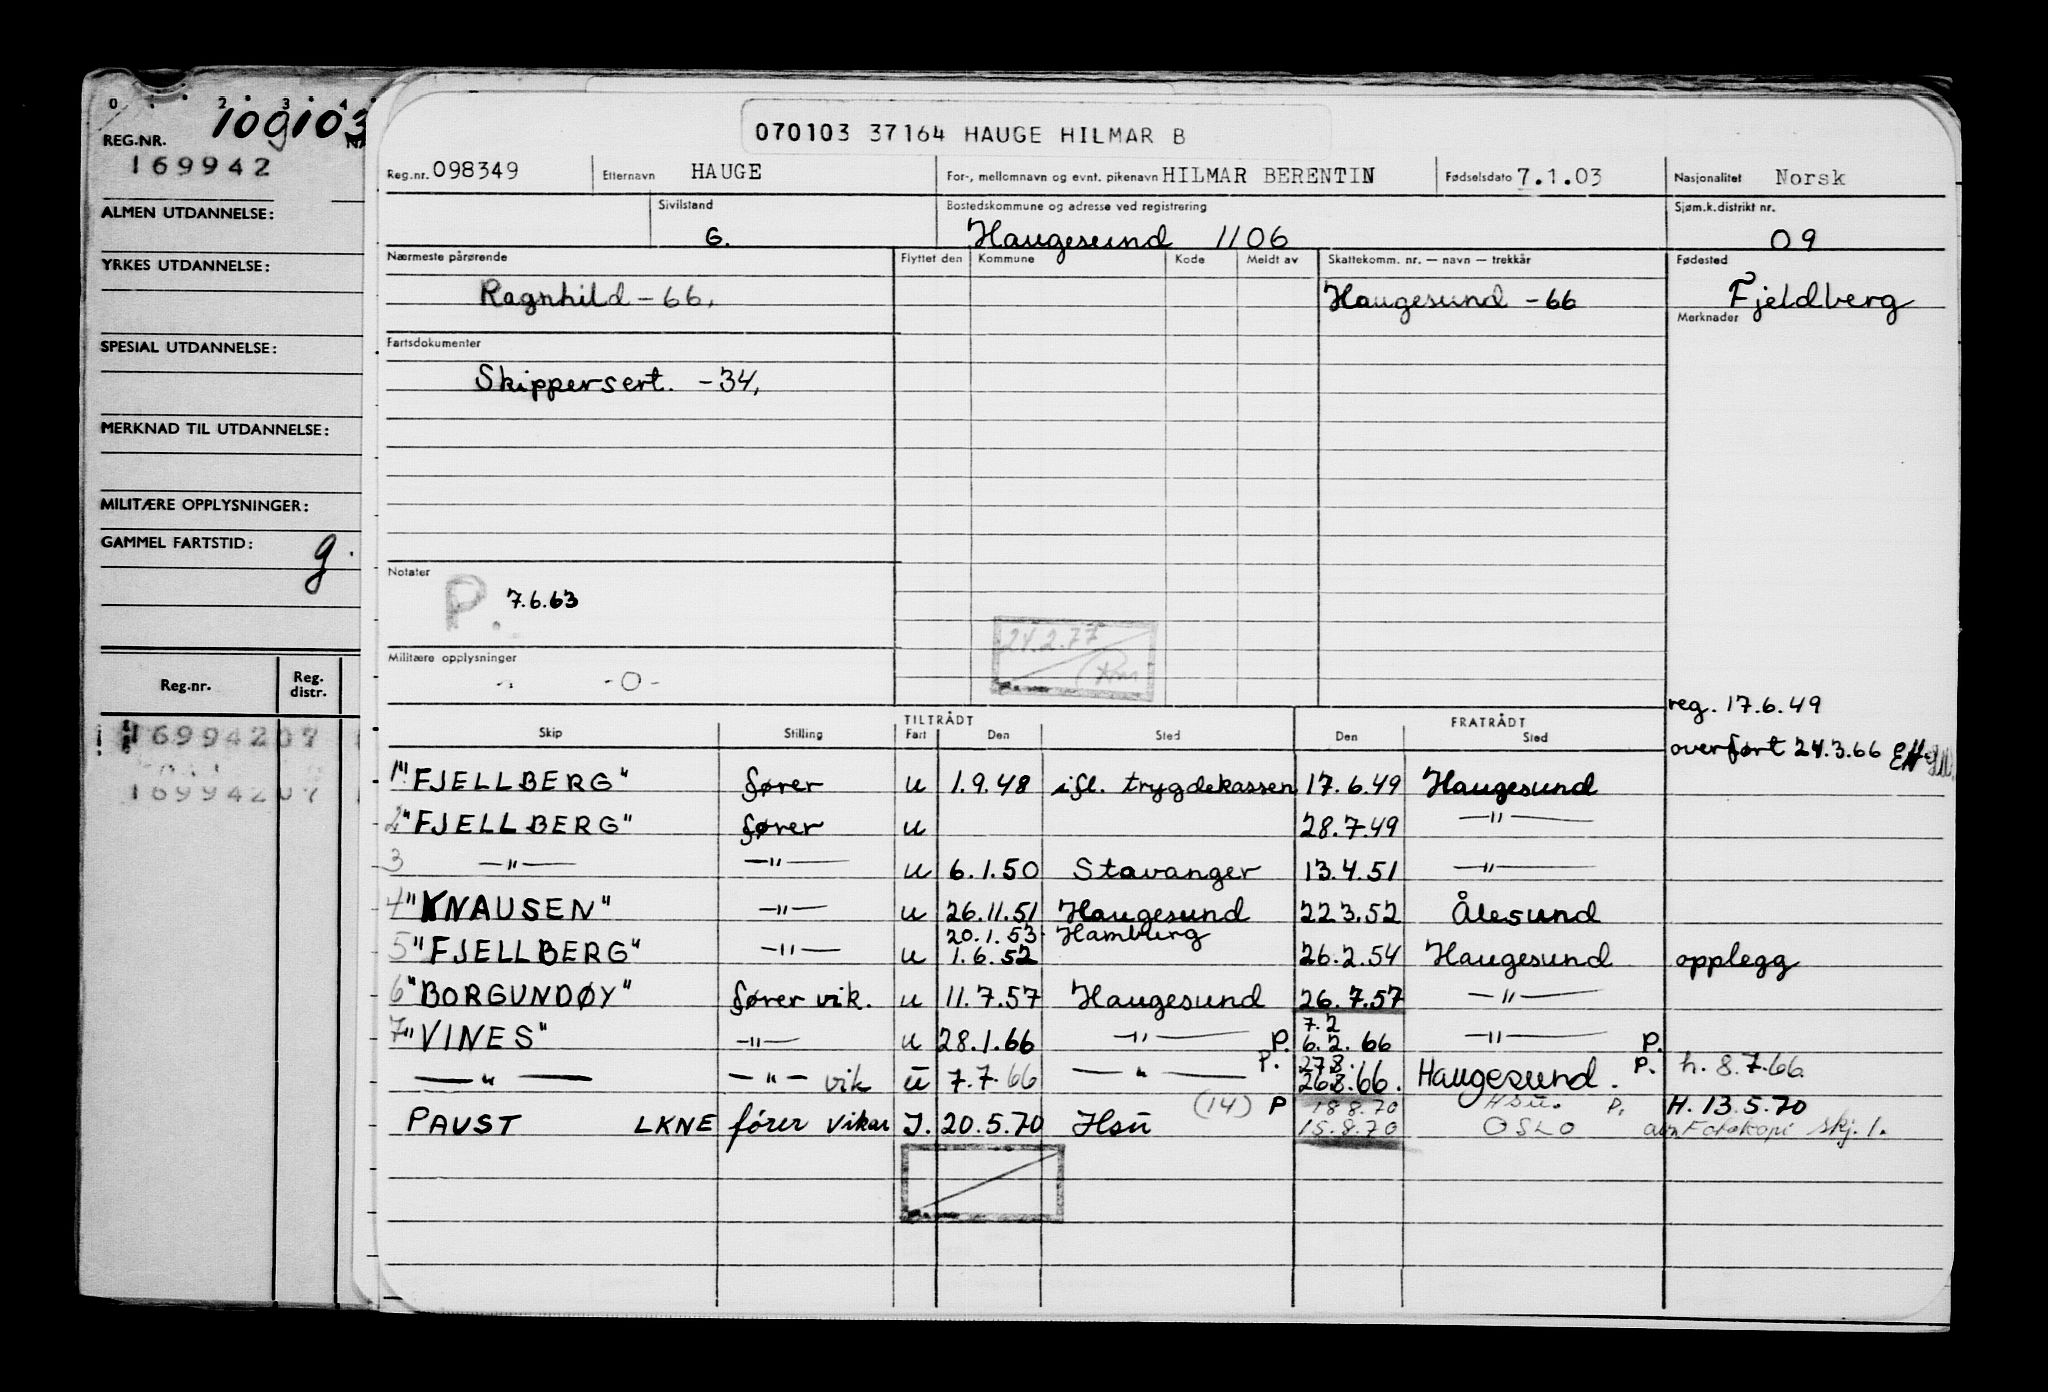 0 1 2 3 4
109103
REG.NR.
169942
ALMEN UTDANNELSE:
YRKES UTDANNELSE:
SPESIAL UTDANNELSE:
MERKNAD TIL UTDANNELSE:
MILITÆRE OPPLYSNINGER:
GAMMEL FARTSTID: g.
Reg.nr. Reg. distr.
169942 07
169942 07
070103 37164 HAUGE HILMAR B
Reg.nr. 098349 Etternavn HAUGE For-, mellomnavn og evnt. pikenavn HILMAR BERENTIN Fødselsdato 7.1.03 Nasjonalitet Norsk
Sivilstand Bostedskommune og adresse ved registrering Sjøm.k.distrikt nr.
G. Haugesund 1106 09
Nærmeste pårørende Flyttet den Kommune Kode Meldt av Skattekomm. nr. — navn — trekkår Fødested
Ragnhild - 66. Haugesund - 66 Fjeldberg
Merknader
Fartsdokumenter
Skippersert. - 34.
Notater
P. 7.6.63
24.2.77
Militære opplysninger
-0-
reg. 17.6.49
overført 24.3.66
TILTRÅDT FRATRÅDT
Skip Stilling Fart Den Sted Den Sted
1 "FJELLBERG" fører u 1.9.48 ifl. trygdekassen 17.6.49 Haugesund
2 "FJELLBERG" fører u 28.7.49 —"—
3 —"— —"— u 6.1.50 Stavanger 13.4.51 —"—
4 "KNAUSEN" —"— u 26.11.51 Haugesund 22.3.52 Ålesund
20.1.53 Hamburg
5 "FJELLBERG" —"— u 1.6.52 26.2.54 Haugesund opplegg
6 "BORGUNDØY" fører vik. u 11.7.57 Haugesund 26.7.57 —"—
7.2
7 "VINES" —"— u 28.1.66 —"— P. 6.2.66 —"— P.
P. 27.8. P. h. 8.7.66
—"— —"— vik u 7.7.66 —"— 26.8.66. Haugesund.
(14) P 18.8.70 HSU. P. H. 13.5.70
PAUST LKNE fører vikar J. 20.5.70 Hsu 15.8.70 OSLO Fotokopi skj. 1.